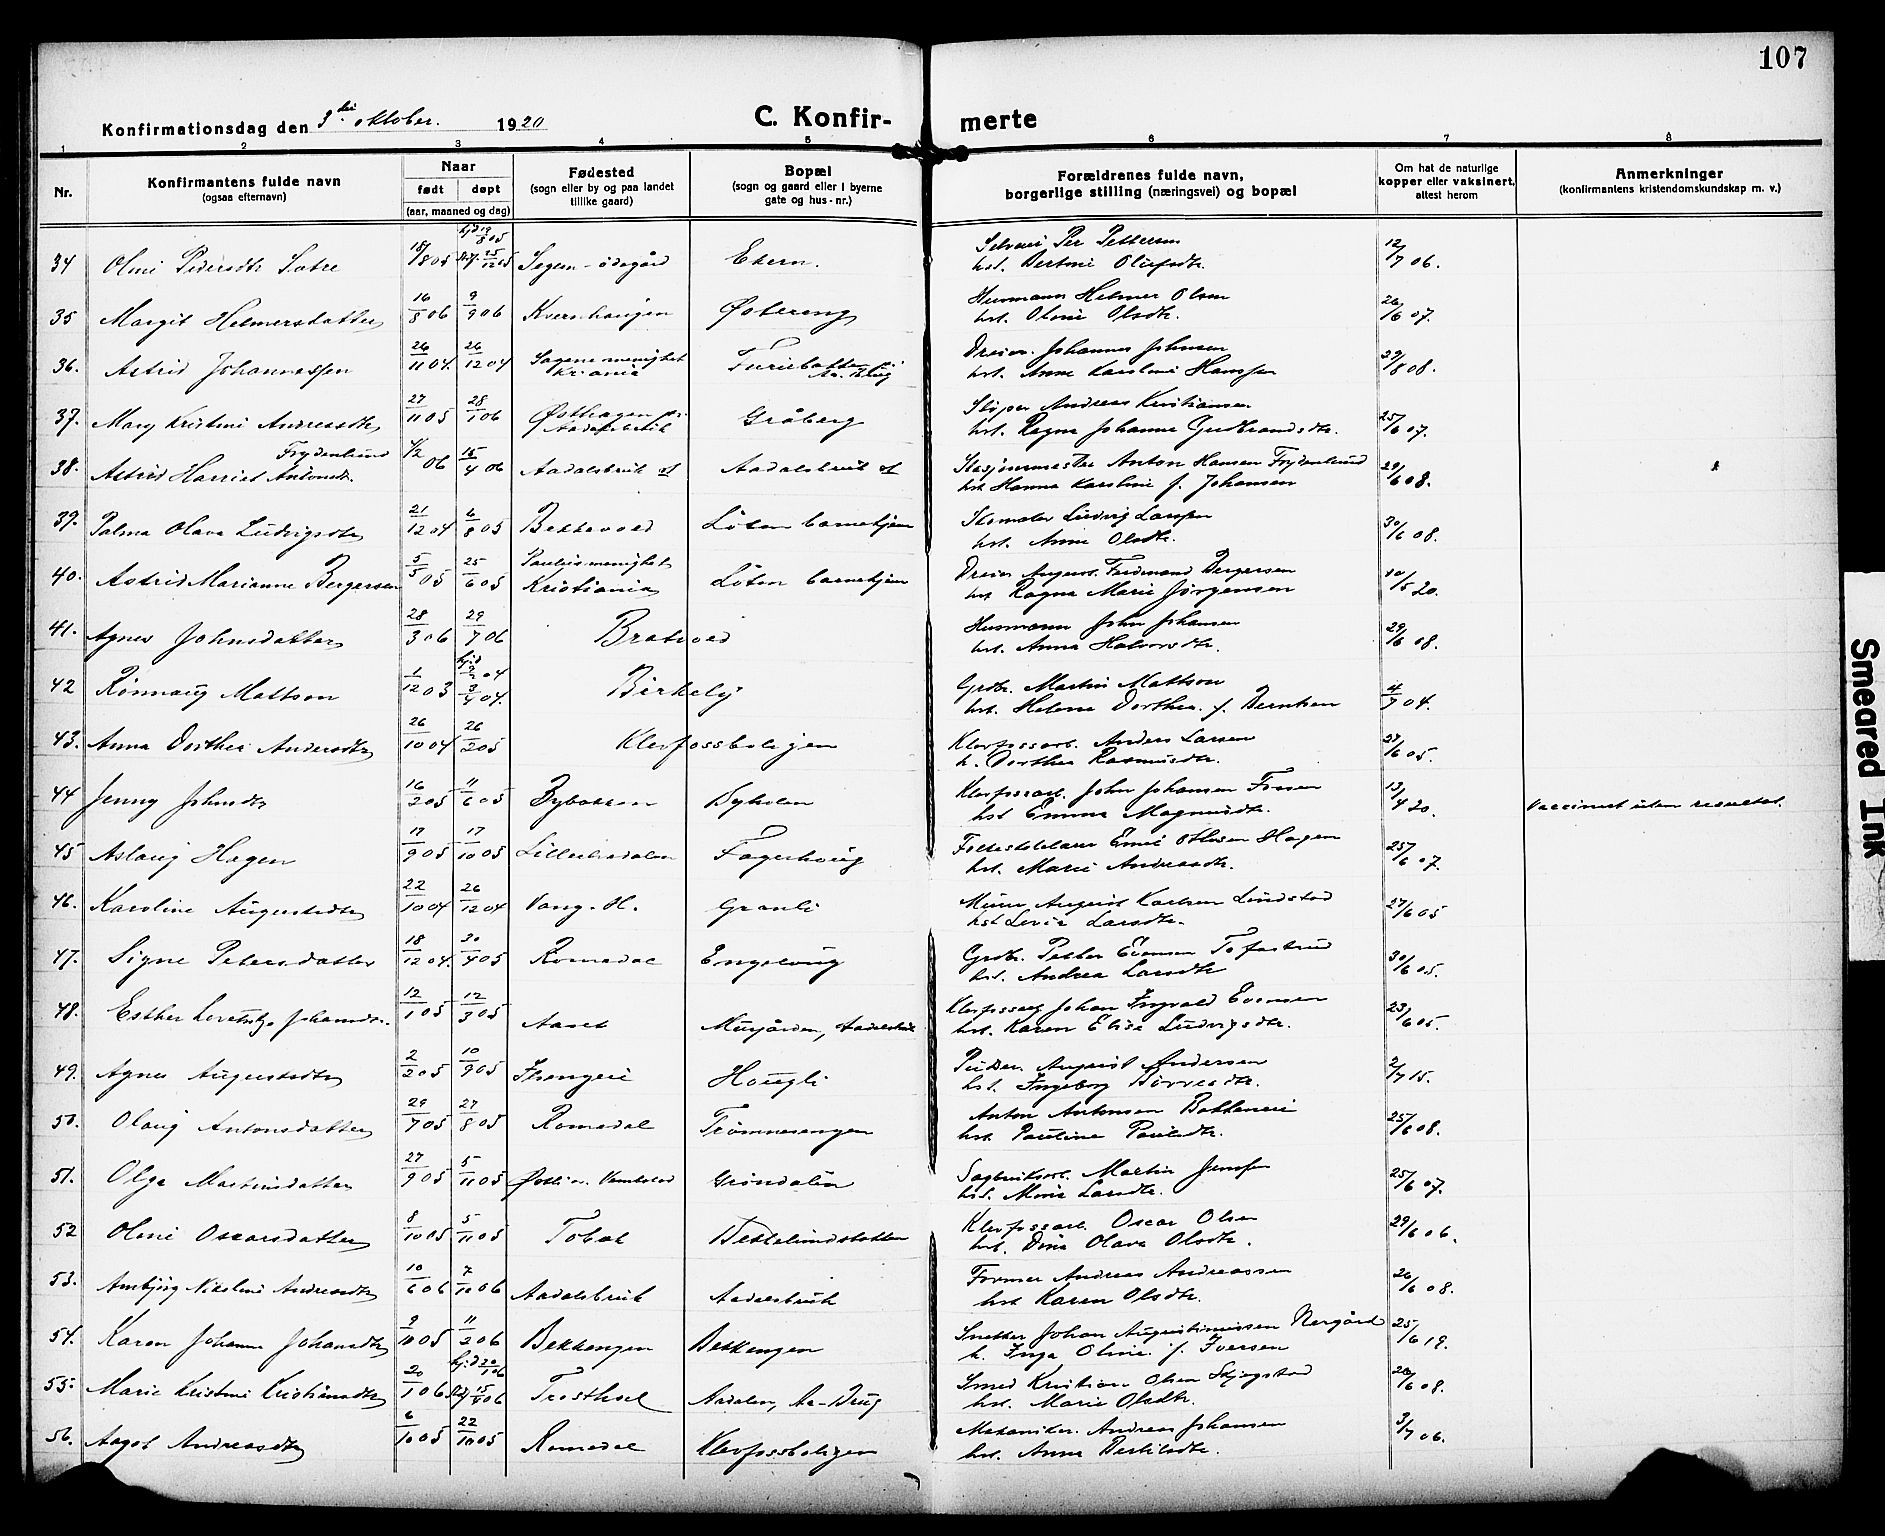 107
Konfirmationsdag den 3die oktober. 1920
C. Konfirmerte
1 2 3 4 5 6 7 8
Nr.
Konfirmantens fulde navn
(ogsaa efternavn)
Naar
født døpt
(aar, maaned og dag)
Fødested
(sogn eller by og paa landet
tillike gaard)
Bopæl
(sogn og gaard eller i byerne
gate og hus-nr.)
Forældrenes fulde navn,
borgerlige stilling (næringsvei) og bopæl
Om hat de naturlige
kopper eller vaksinert,
attest herom
Anmerkninger
(konfirmantens kristendomskundskap m. v.)
34 Olini Pedersdtr Sætre 15/8 05 Segen-ødegård Ekern. Per Pettersen
hst. Bertine Olufsdtr. 12/7 06.
35 Margit Helmersdatter 16/8 06 9/9 06 Kvernhaugen Østereng Husmann Helmer Olsen
hst. Oline Olsdtr. 26/6 07.
36. Astrid Johannessen 26/11 04. 26/12 04 Sagene menighet
Kr.ania Dreier. Johannes Johnsen
hst. Anne Karoline Hansen 29/8 08.
37. Mary Kristine Andreasdtr 27/11 05 28/1 06 Østhagen pr.
Aadalsbruk Gråberg Støper Andreas Kristiansen
hst. Ragna Johanne Gudbrandsdtr. 25/6 07.
38. Astrid Harriet Antonsdtr. Frydenlund 1/2 06 15/4 06 Aadalsbruk st Aadalsbruk st Stasjonsmester Anton Hansen Frydenlund
hst Hanna Karoline f. Johansen 29/6 08.
39. Palma Olava Ludvigsdtr 21/12 04 6/8 05 Bekkevold Løten barnehjem Skomaker Ludvig Larsen
hst. Anne Olsdtr. 30/6 08.
40. Astrid Marianne Bergersen 5/5 05 25/6 05 Paulus menighet
Kristiania Løten barnehjem Dreier August Ferdinand Bergersen
hst Ragna Marie Jørgensen 10/5 20.
41. Agnes Johnsdatter 28/3 06 29/7 06 Bratvold Husmann John Johansen
hst. Anna Halvorsdtr. 29/6 08.
42 Rønnaug Mattson 1/12 03 hj.d 2/2 04
3/4 04. Birkely Grdbr. Martin Mattson
hst. Helene Dorthea f. Berntsen 4/7 04.
43. Anna Dorthea Andersdtr 26/10 04 26/2 05 Klevfossboligen Klevfossarb. Anders Larsen
h. Dorthea Rasmusdtr. 27/6 05.
44 Jenny Johnsdtr 16/2 05 11/6 05 Bybakken Byholen Klevfossarb. John Johansen Fossen
hst Emma Magnusdtr. 13/4 20. Vaccinert uten resultat.
45 Aslaug Hagen 17/9 05 17/10 05 Lilleelvedalen Fagerhaug Emil Othesen Hagen
hst. Marie Andreasdtr. 25/6 07.
46. Karoline Augustsdtr 22/10 04 26/12 04 Vang. H. Granli Murer August Karlsen Lundstad
hst Lovise Larsdtr. 27/6 05
47. Signe Petersdatter 18/12 04. 30/4 05 Romedal Engelaug Grdbr. Petter Evensen Tofastrud
hst. Andrea Larsdtr 30/6 05.
48. Esther Johansdtr. 12/1 05 12/3 05 Aaset Murgården, Aadalsbruk Klevfossarb Johan Ingvald Evensen
hst. Karen Elise Ludvigsdtr. 23/6 05.
49. Agnes Augustsdtr 2/2 05 10/9 05 Haugli August Andersen
hst. Ingeborg 2/7 15.
50. Olaug Antonsdatter 29/7 05 27/8 05 Romedal Trømnesengen Anton Antonsen Bakkeneie
hst. Pauline Paulsdtr. 25/6 08.
51. Olga Martinsdatter 27/9 05 5/11 05 Grøndalen Sagbruksarb. Martin Jensen
hst. Marie Larsdtr. 25/6 07.
52 Olini Oscarsdatter 8/10 05 5/11 05 Tobak Bekkelundstatten Klevfossarb. Oscar Olsen
hst. Dina Olava Olsdtr. 29/6 06.
53. Arnbjørg Nikoline Andreasdtr 10/6 06 7/10 06 Aadalsbruk Aadalsbruk Former Andreas Andreassen
hst Karen Olsdtr. 26/6 08.
54. Karen Johanne Johansdtr 9/10 05 11/2 06 Bekkengen Bekkengen Snekker Johan Augustinussen Nergård
h. Inga Oline f. Iversen 25/6 19.
55. Marie Kristine Kristiansdtr 20/1 06 hj.d 20/1 06 Aadalen, Aa-Brug Smed Kristian Olsen Skjingstad
hst. Marie Olsdtr. 28/6 08.
56. Aagot Andreasdtr 6/10 05 22/10 05 Romedal Klevfossboligen Mekaniker. Andreas Johansen
hst. Anna Bertilsdtr. 3/7 06.
Smeared Ink